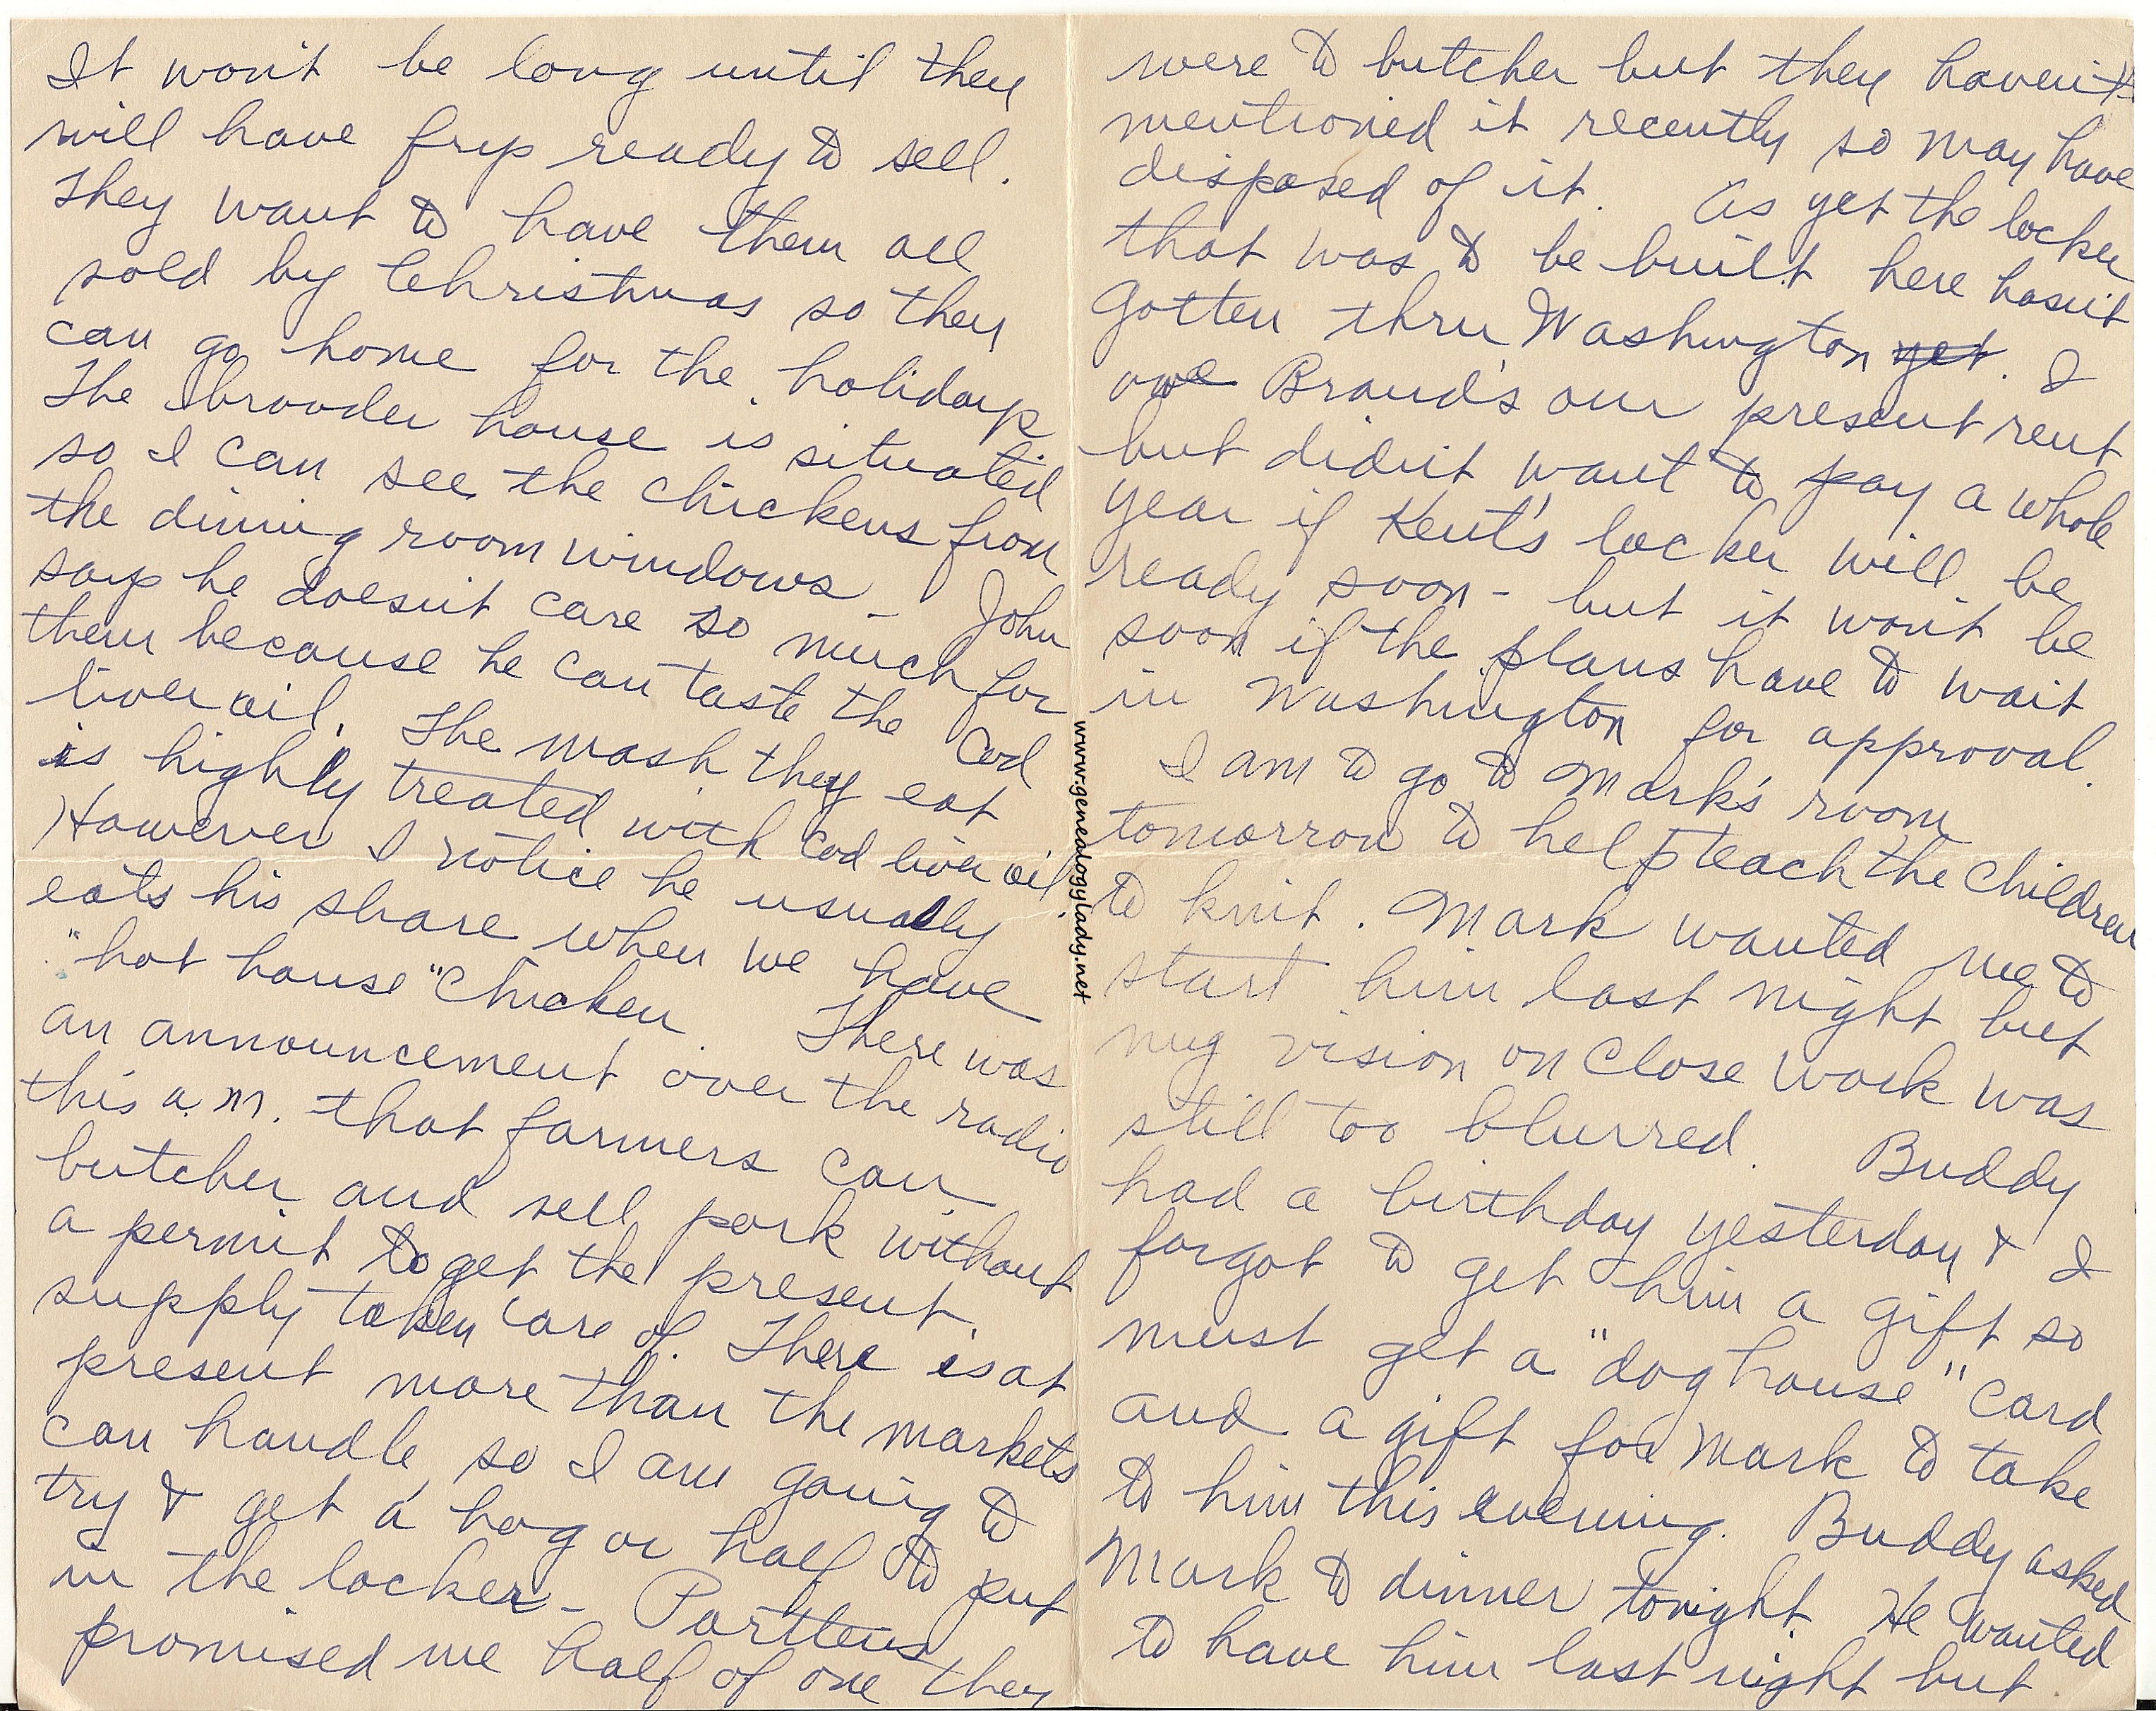 It won't be long until they
will have frys ready to sell.
They want to have them all
sold by Christmas so they
can go home for the holidays
The brooder house is situated
so I can see the chickens from
the dining room windows - John
says he doesn't care so much for
them because he can taste the Cod
liver oil. The mash they eat
is highly treated with Cod liver oil.
However I notice he usually
eats his share when we have
"hot house" chicken. There was
an announcement over the radio
this a.m. that farmers can
butcher and sell pork without
a permit to get the present
supply taken care of. There is at
present more than the markets
can handle, so I am going to
try & get a hog or half to put
in the locker - Parttens
promised me half of one they
were to butcher but they haven't
mentioned it recently so may have
disposed of it. As yet the locker
that was to be built here hasn't
gotten thru Washington yet. I
owe Brand's our present rent
but didn't want to pay a whole
year if Kent's locker will be
ready soon - but it won't be
soon if the plans have to wait
in Washington for approval.
I am to go to Mark's room
tomorrow to help teach the children
to knit. Mark wanted me to
start him last night but
my vision on close work was
still too blurred. Buddy
had a birthday yesterday & I
forgot to get him a gift so
must get a "dog house" card
and a gift for Mark to take
to him this evening. Buddy asked
Mark to dinner tonight. He wanted
to have him last night but
www.genealogylady.net